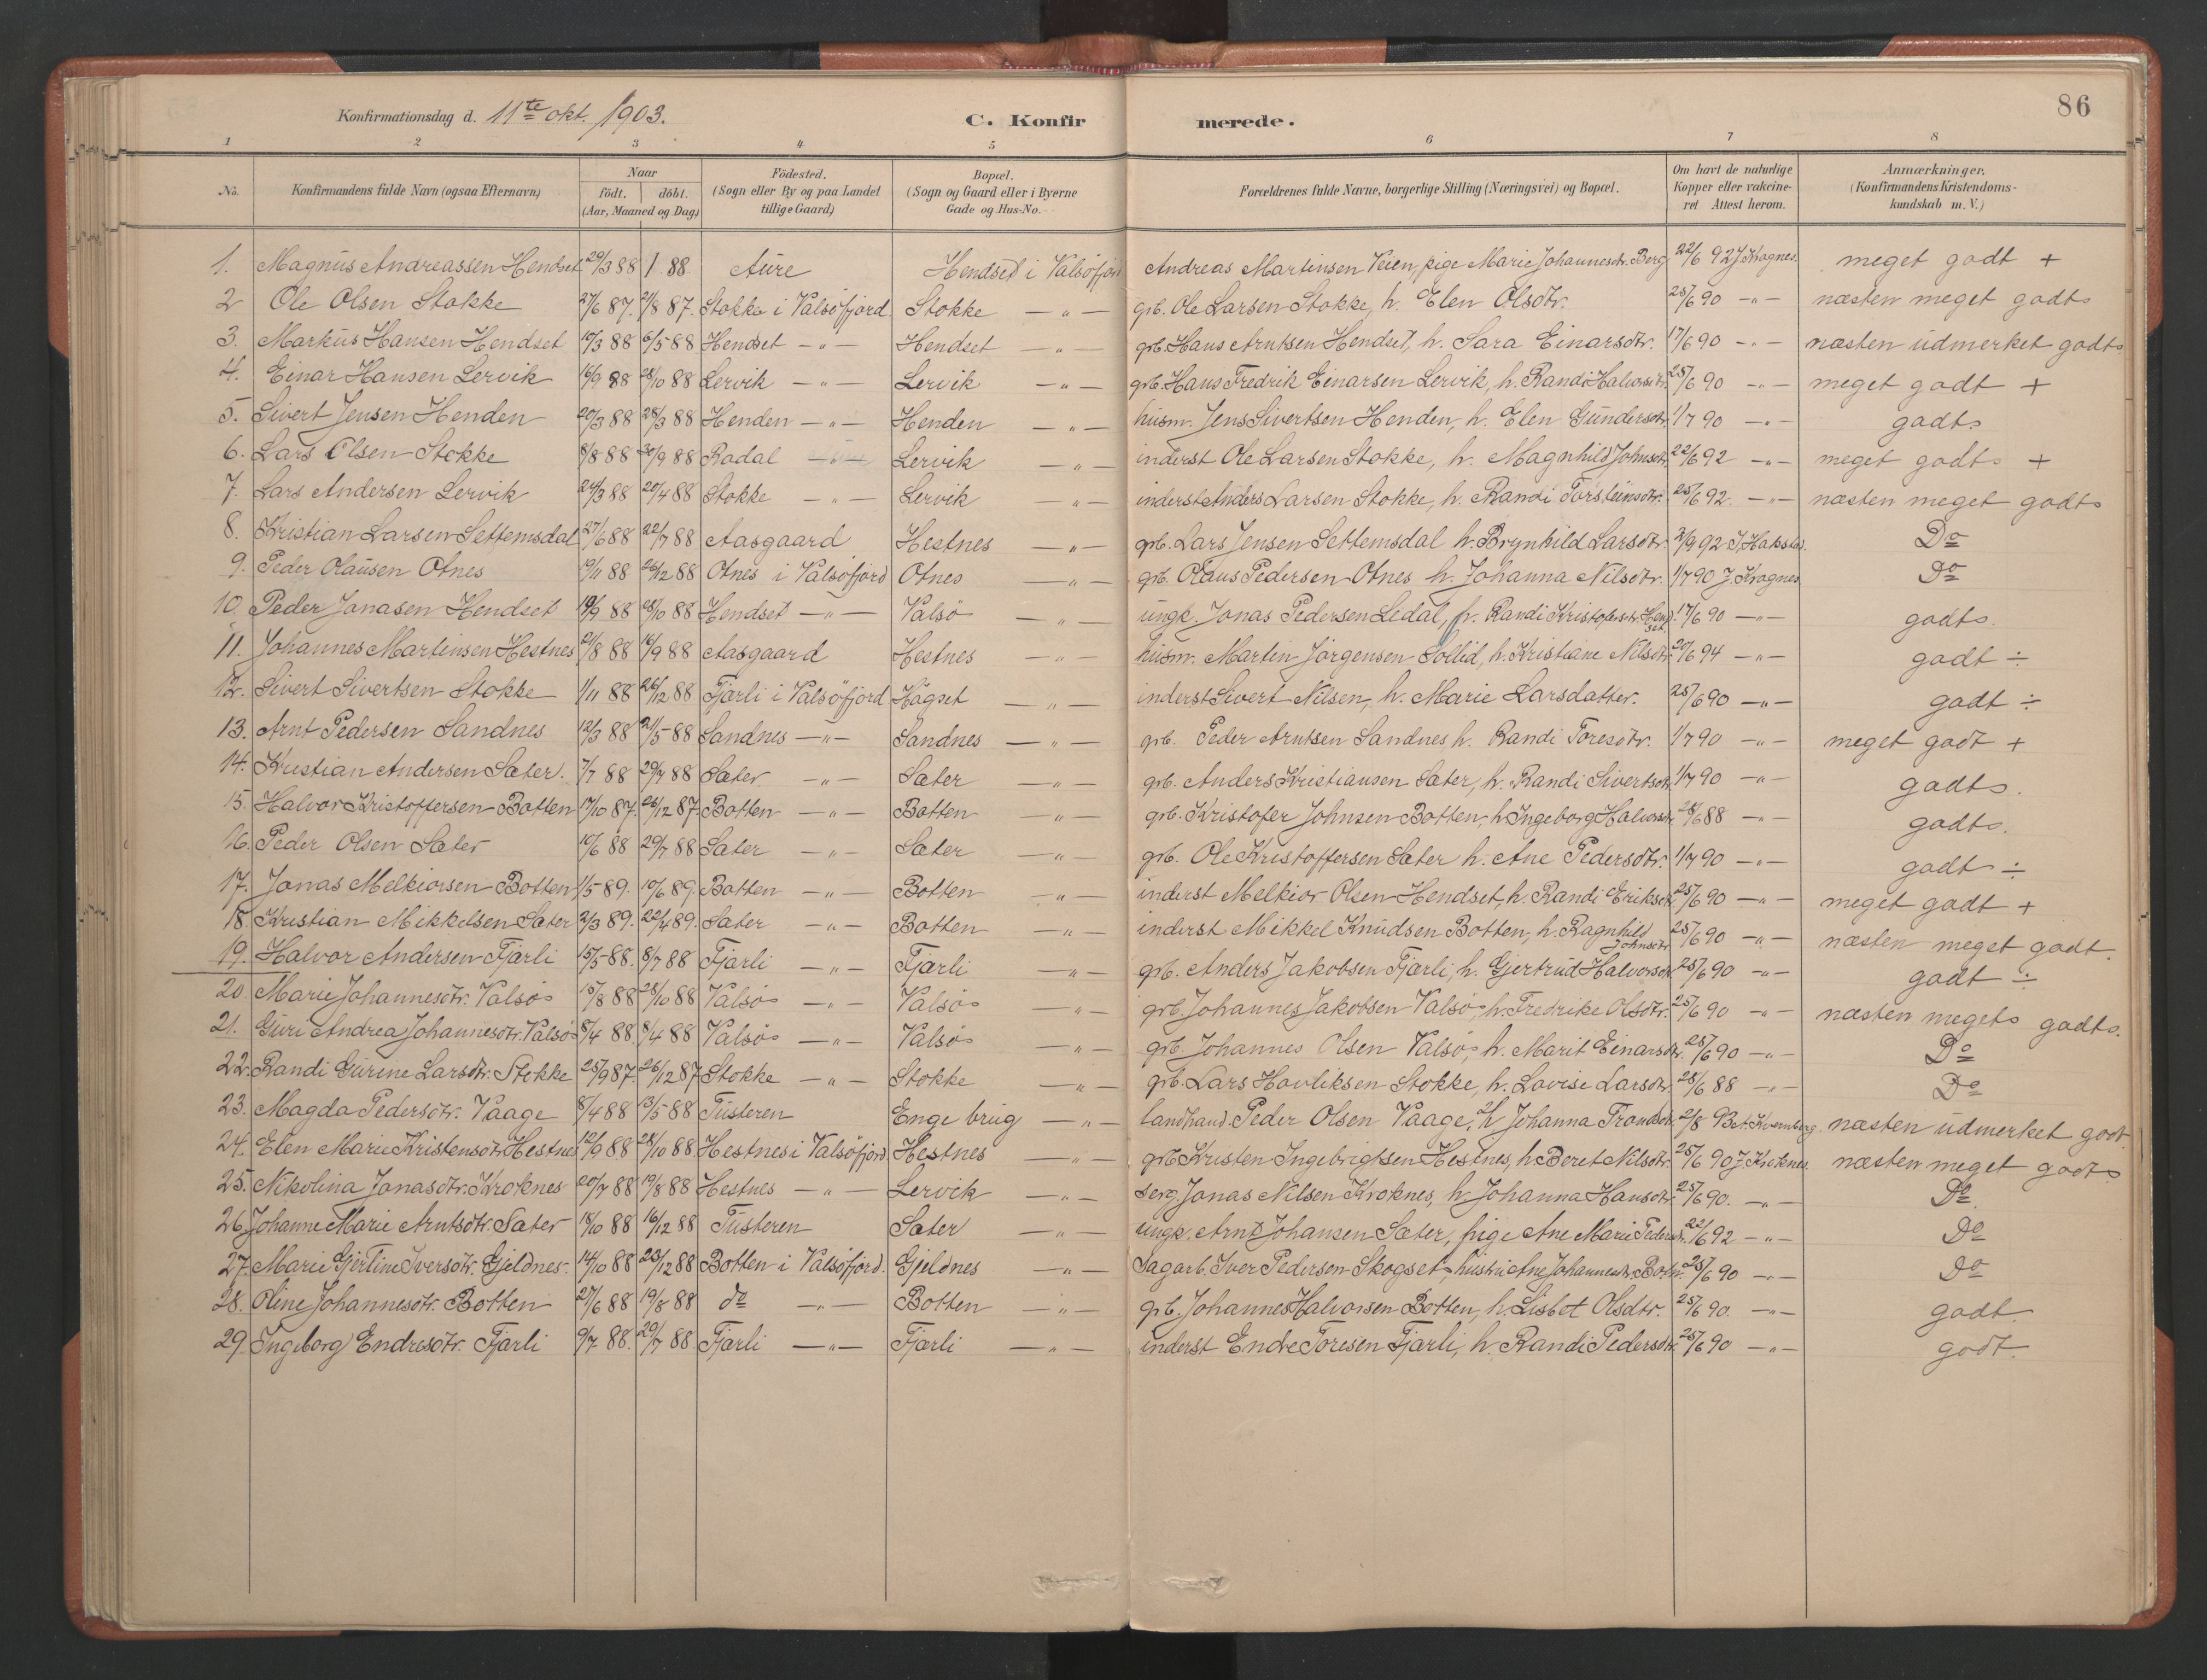 86
Konfirmationsdag d. 11te okt. 1903.
C. Konfirmerede.
1 2 3 4 5 6 7 8
No. Konfirmandens fulde Navn (ogsaa Efternavn) Naar födt. döbt. (Aar, Maaned og Dag) Födested. (Sogn eller By og paa Landet tillige Gaard) Bopæl. (Sogn og Gaard eller i Byerne Gade og Hus-No. Forældrenes fulde Navne, borgerlige Stilling (Næringsvei) og Bopæl. Om havt de naturlige Kopper eller vakcineret Attest herom. Anmærkninger. (Konfirmandens Kristendomskundskab m. V.)
1. Magnus Andreassen Hendset 29/3 88 1 88 Aure Hendset i Valsöfjord Andreas Martinsen Veien, pige Marie Johannesdtr. Berg 22/6 92 J. Krognes. meget godt +
2 Ole Olsen Stokke 27/6 87. 21/8 87. Stokke i Valsöfjord Stokke — " — grb. Ole Larsen Stokke, h. Elen Olsdtr. 25/6 90 — " — næsten meget godt
3. Markus Hansen Hendset 10/3 88 6/5 88 Hendset — " — Hendset — " — grb. Hans Arntsen Hendset, h. Sara Einarsdtr. 17/6 90 — " — næsten udmerket godt
4. Einar Hansen Lervik 16/9 88 28/10 88 Lervik — " — Lervik — " — grb. Hans Fredrik Einarsen Lervik, h. Randi Halvorsdtr. 25/6 90 — " — meget godt +
5. Sivert Jensen Henden 20/3 88 28/3 88 Henden — " — Henden — " — husm. Jens Sivertsen Henden, h. Elen Gundersdtr. 1/7 90 — " — godt
6. Lars Olsen Stokke 8/8 88 30/9 88 Rodal — " — Lervik — " — inderst Ole Larsen Stokke, h. Magnhild Johnsdtr. 22/6 92 — " — meget godt +
7. Lars Andersen Lervik 24/3 88 20/4 88 Stokke — " — Lervik — " — inderst Anders Larsen Stokke, h. Randi Torsteinsdtr. 25/6 92. — " — næsten meget godt
8. Kristian Larsen Settemsdal 27/6 88 22/7 88 Aasgaard Hestnes — " — grb. Lars Jensen Settemsdal h. Brynhild Larsdtr. 2/9 92 Do
9. Peder Olausen Otnes 19/11 88 26/12 88 Otnes i Valsöfjord Otnes — " — grb. Olaus Pedersen Otnes h. Johanna Nilsdtr. 1/7 90 J. Krognes Do
10. Peder Jonasen Hendset 19/9 88 28/10 88 Hendset — " — Valsö — " — ungk. Jonas Pedersen Ledal, p. Randi Kristofersdtr. Hendset. 17/6 90 — " — godt.
11. Johannes Martinsen Hestnes 21/8 88 16/9 88 Aasgaard Hestnes — " — husm. Martin Jörgensen Sollid, h. Kristiane Nilsdtr. 20/6 94 — " — godt ÷
12. Sivert Sivertsen Stokke 1/11 88 26/12 88 Fjærli i Valsöfjord Högset — " — inderst Sivert Nilsen, h. Marie Larsdatter. 25/6 90 — " — godt ÷
13. Arnt Pedersen Sandnes 12/3 88 21/5 88 Sandnes — " — Sandnes — " — grb. Peder Arntsen Sandnes h. Randi Toresdtr. 1/7 90 — " — meget godt +
14. Kristian Andersen Sæter. 7/7 88 29/7 88 Sæter — " — Sæter — " — grb. Anders Kristiansen Sæter, h. Randi Sivertsdtr. 1/7 90 — " — godt.
15. Halvor Kristoffersen Botten 17/10 87. 26/12 87. Botten — " — Botten — " — grb. Kristofer Johnsen Botten, h. Ingeborg Halvorsdtr. 28/6 88 — " — godt.
16. Peder Olsen Sæter 10/6 88 29/7 88 Sæter — " — Sæter — " — grb. Ole Kristoffersen Sæter h. Ane Pedersdtr. 1/7 90 — " — godt ÷
17. Jonas Melkiorsen Botten 1/5 89. 10/6 89. Botten — " — Botten — " — inderst Melkior Olsen Hendset, h. Randi Eriksdtr. 25/6 90 — " — meget godt +
18. Kristian Mikkelsen Sæter 2/3 89. 22/4 89. Sæter — " — Botten — " — inderst Mikkel Knudsen Botten, h. Ragnhild Johnsdtr. 25/6 90 — " — næsten meget godt.
19. Halvor Andersen Fjærli 15/5 88. 8/7 88 Fjærli — " — Fjærli — " — grb. Anders Jakobsen Fjærli, h. Gjertrud Halvorsdtr. 25/6 90 — " — godt ÷
20. Marie Johannesdtr. Valsö 15/8 88 28/10 88 Valsö — " — Valsö — " — grb. Johannes Jakobsen Valsö, h. Fredrike Olsdtr. 25/6 90 — " — næsten meget godt.
21. Guri Andrea Johannesdtr. Valsö 8/4 88. 8/4 88 Valsö — " — Valsö — " — grb. Johannes Olsen Valsö, h. Marit Einarsdtr. 25/6 90 — " — Do
22. Randi Gurine Larsdtr. Stokke 25/9 87. 26/12 87 Stokke — " — Stokke — " — grb. Lars Havliksen Stokke, h. Lovise Larsdtr. 28/6 88 — " — Do
23. Magda Pedersdtr. Vaage 8/4 88 13/5 88 Tusteren Enge brug — " — landhand. Peder Olsen Vaage, h Johanna Frandsdtr. 2/8 93 Kvernberg. næsten udmerket godt
24. Elen Marie Kristensdtr. Hestnes 12/9 88 28/10 88 Hestnes i Valsöfjord. Hestnes — " — grb. Kristen Ingebrigtsen Hestnes, h. Beret Nilsdtr. 25/6 90 J. Kroknes. næsten meget godt
25. Nikolina Jonasdtr. Kroknes 20/7 88 19/8 88 Hestnes — " — Lervik — " — serg. Jonas Nilsen Kroknes, h. Johanna Hansdtr. 25/6 90. — " — Do
26. Johanne Marie Arntsdtr. Sæter 18/10 88 16/12 88 Tusteren Sæter — " — ungk. Arnt Johansen Sæter, pige Ane Marie Pedersdtr. 22/6 92 — " — Do
27. Marie Gjertine Iversdtr. Gjeldnes. 14/10 88 23/12 88 Botten i Valsöfjord. Gjeldnes — " — Sagarb. Iver Pedersen Skogset, hustru Ane Johannesdtr. Botn. 25/6 90 — " — Do
28. Oline Johannesdtr. Botten 27/6 88 19/8 88 do — " — Botten — " — grb. Johannes Halvorsen Botten, h. Lisbet Olsdtr. 25/6 90. — " — godt.
29. Ingeborg Endresdtr. Fjærli 9/7 88. 29/7 88. Fjærli — " — Fjærli — " — inderst Endre Toresen Fjærli, h. Randi Pedersdtr. 25/6 90 — " — godt.